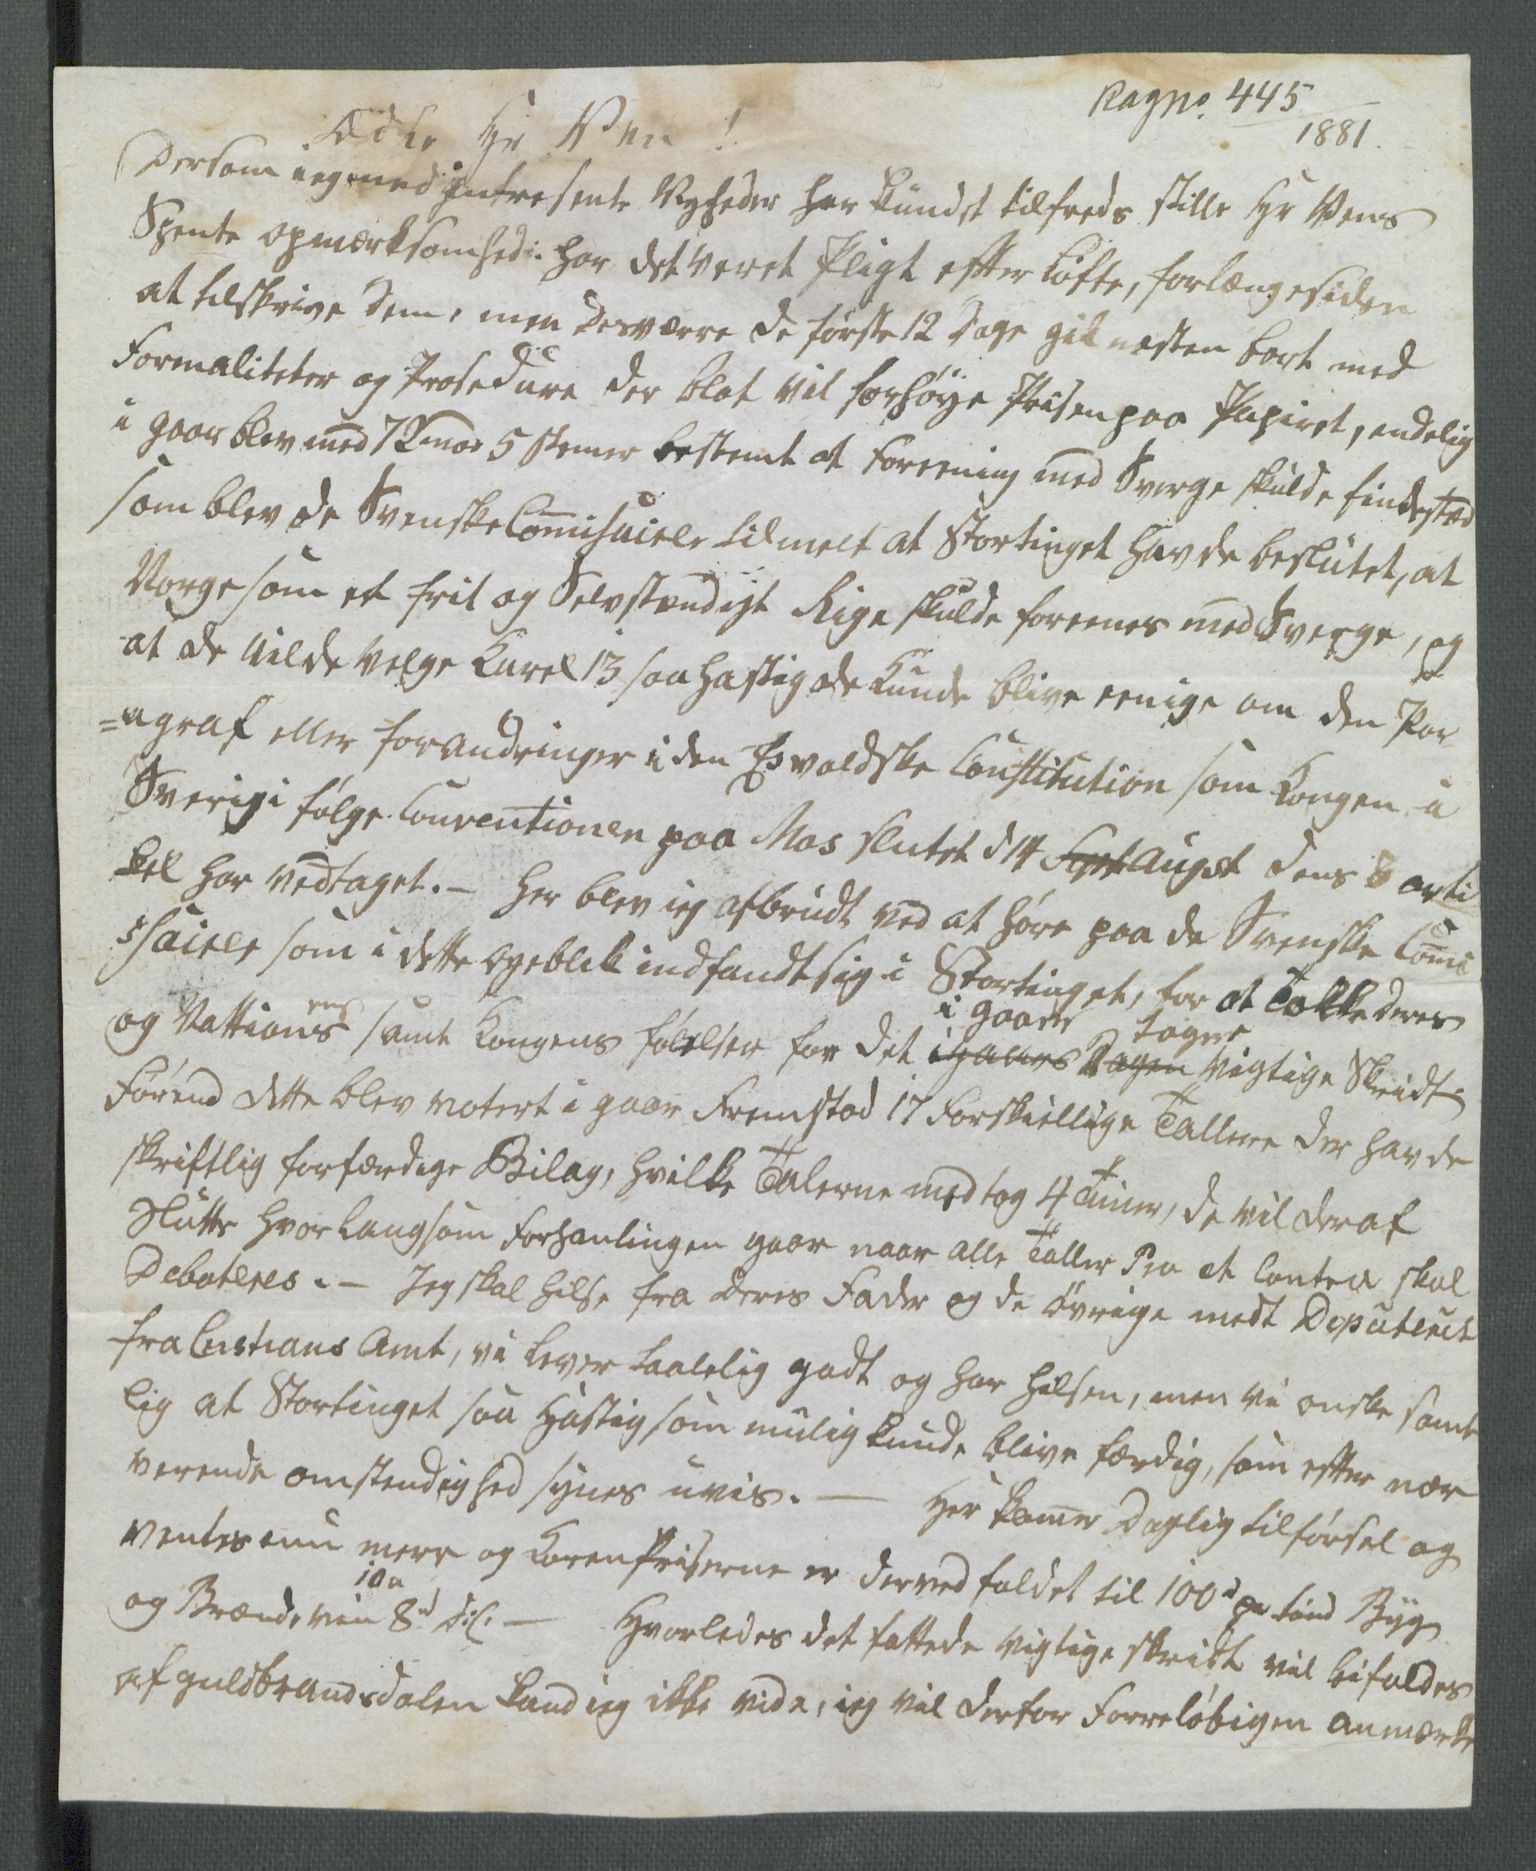 Ragno. 445
1881.
Ædle Hr Ven!
Dersom ieg med Intresente Nyheder har kundet tilfreds stille Hr Vens
Spente opmærksomhed: har det veret Pligt efter Løfte, forlængesiden
at tilskrive Dem, men desværre de første 12 Dage gik næsten bort med
Formaliteter og Prosedure der blot vil forhøye Prisen paa Papiret, endelig
i gaar blev med 72 mod 5 Stemer bestemt at Foreening med Sverge skulde finde sted
som blev de Svenske Commisaierer tilmelt at Stortinget havde besluttet, at
Norge som et frit og Selvstendigt Rige skulde foreenes med Sverge, og
at de vilde velge Karel 13 saa hastig de kunde blive eenige om den Par-
=agraf eller forandringer i den Eisvoldske Constitution som Kongen i
Sverig i følge Conventionen paa Mos slutet d 14 Sept August dens 8 arti
kel har vedtaget. — Her blev ieg afbrudt ved at høre paa de Svenske Comi
ssaierer som i dette øyeblik indfandt sig i Stortinget, for at Takke deres
og Nattionens samt Kongens følelser for det i gaars Dagen i gaar tagne vigtige Skridt
Førend dette blev votert i gaar Fremstod 17 Forskiellige Tallere der havde
skriftlig forfærdige Bilag, hvilke Talerne medtog 4 Timer, De vil deraf
slutte hvor langsom Forhanlingen gaar naar alle Taller Pro et Contra skal
Debateres. — Jeg skal hilse fra Deres Fader og de øvrige medt Deputeret
fra Cristians Amt, vi lever taalelig godt og har helsen, men vi ønske samt
lig at Stortinget saa Hastig som mulig kunde blive færdig, som efter nær
verende omstendighed synes uvis. — Her komer Daglig tilførsel og
ventes enu mere og Koren Priserne er derved faldet til 100d pr tønd Byg
og Brændevin 8 10 a rd d:C. — Hvorledes det fattede vigtige skridt vil bifaldes
af guldbrandsdalen kand ieg ikke vide, ieg vil derfor Forreløbigen anmærke